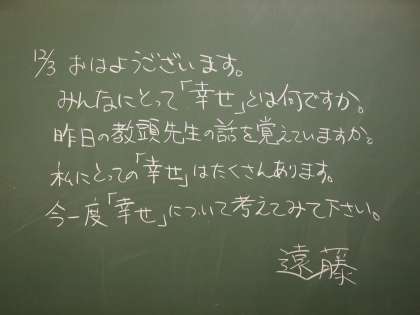 12/3 おはようございます。
みんなにとって「幸せ」とは何ですか。
昨日の教頭先生の話を覚えていますか。
私にとっての「幸せ」はたくさんあります。
今一度「幸せ」について考えてみて下さい。
遠藤